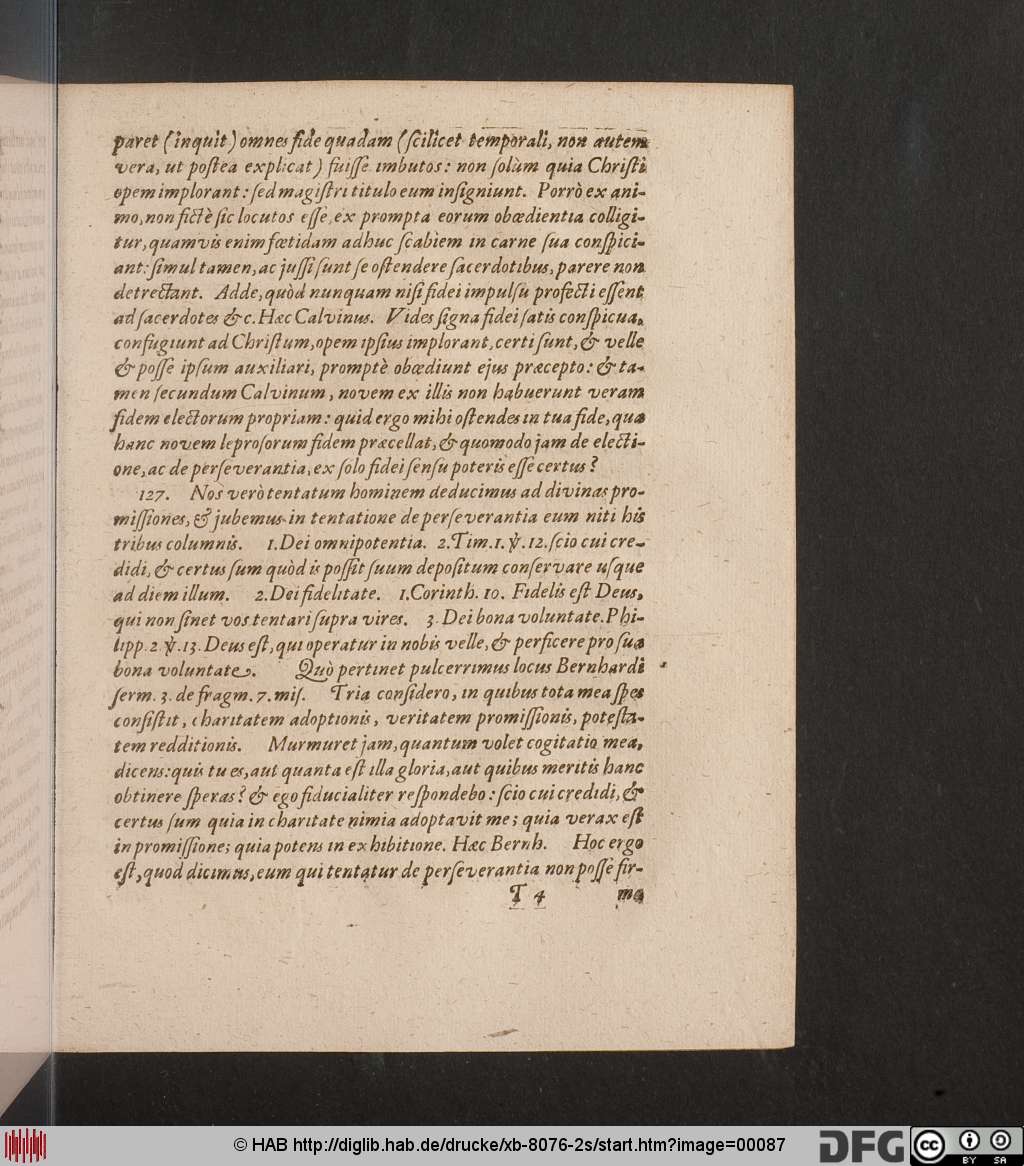 paret (inquit) omnes fide quadam (ſcilicet temporali, non autem
vera, ut poſtea explicat) fuiſſe imbutos: non ſolùm quia Chriſti
opem implorant: ſed magiſtri titulo eum inſigniunt. Porrò ex ani-
mo, non fictè ſic locutos eſſe, ex prompta eorum obœdientia colligi-
tur, quamvis enim fœtidam adhuc ſcabiem in carne ſua conſpici-
ant: ſimul tamen, ac juſſi ſunt ſe oſtendere ſacerdotibus, parere non
detrectant. Adde, quòd nunquam niſi fidei impulſu profecti eſſent
ad ſacerdotes &c. Hæc Calvinus. Vides ſigna fidei ſatis conſpicua,
confugiunt ad Chriſtum, opem ipſius implorant, certi ſunt, & velle
& poſſe ipſum auxiliari, promptè obœdiunt ejus præcepto: & ta-
men ſecundum Calvinum, novem ex illis non habuerunt veram
fidem electorum propriam: quid ergo mihi oſtendes in tua fide, quæ
hanc novem leproſorum fidem præcellat, & quomodo jam de electi-
one, ac de perſeverantia, ex ſolo fidei ſenſu poteris eſſe certus?
127. Nos verò tentatum hominem deducimus ad divinas pro-
miſſiones, & jubemus in tentatione de perſeverantia eum niti his
tribus columnis. 1. Dei omnipotentia. 2. Tim. 1. ℣. 12. ſcio cui cre-
didi, & certus ſum quòd is poſſit ſuum depoſitum conſervare uſque
ad diem illum. 2. Dei fidelitate. 1. Corinth. 10. Fidelis eſt Deus,
qui non ſinet vos tentari ſupra vires. 3. Dei bona voluntate. Phi-
lipp. 2 ℣. 13. Deus eſt, qui operatur in nobis velle, & perficere pro ſua
bona voluntate. Quò pertinet pulcerrimus locus Bernhardi
ſerm. 3. de fragm. 7. miſ. Tria conſidero, in quibus tota mea ſpes
conſiſtit, charitatem adoptionis, veritatem promiſſionis, poteſta-
tem redditionis. Murmuret jam, quantum volet cogitatio mea,
dicens: quis tu es, aut quanta eſt illa gloria, aut quibus meritis hanc
obtinere ſperas? & ego fiducialiter reſpondebo: ſcio cui credidi, &
certus ſum quia in charitate nimia adoptavit me; quia verax eſt
in promiſſione; quia potens in exhibitione. Hæc Bernh. Hoc ergo
eſt, quod dicimus, eum qui tentatur de perſeverantia non poſſe fir-
T 4 mo
© HAB http://diglib.hab.de/drucke/xb-8076-2s/start.htm?image=00087
DFG
cc BY SA